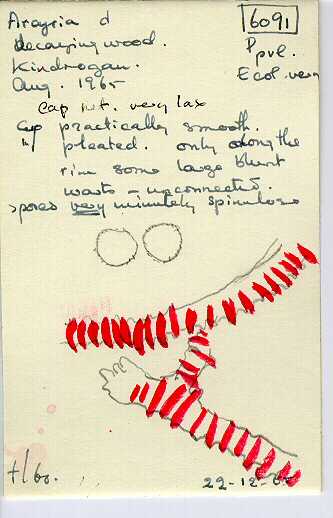 Arcyria d
6091
decaying wood.
Kindrogan.
Aug. 1965
Cap net. very lax
cup practically smooth.
" pleated. only along the
rim some large blunt
warts – unconnected.
spores very minutely spinulose
22-12-65